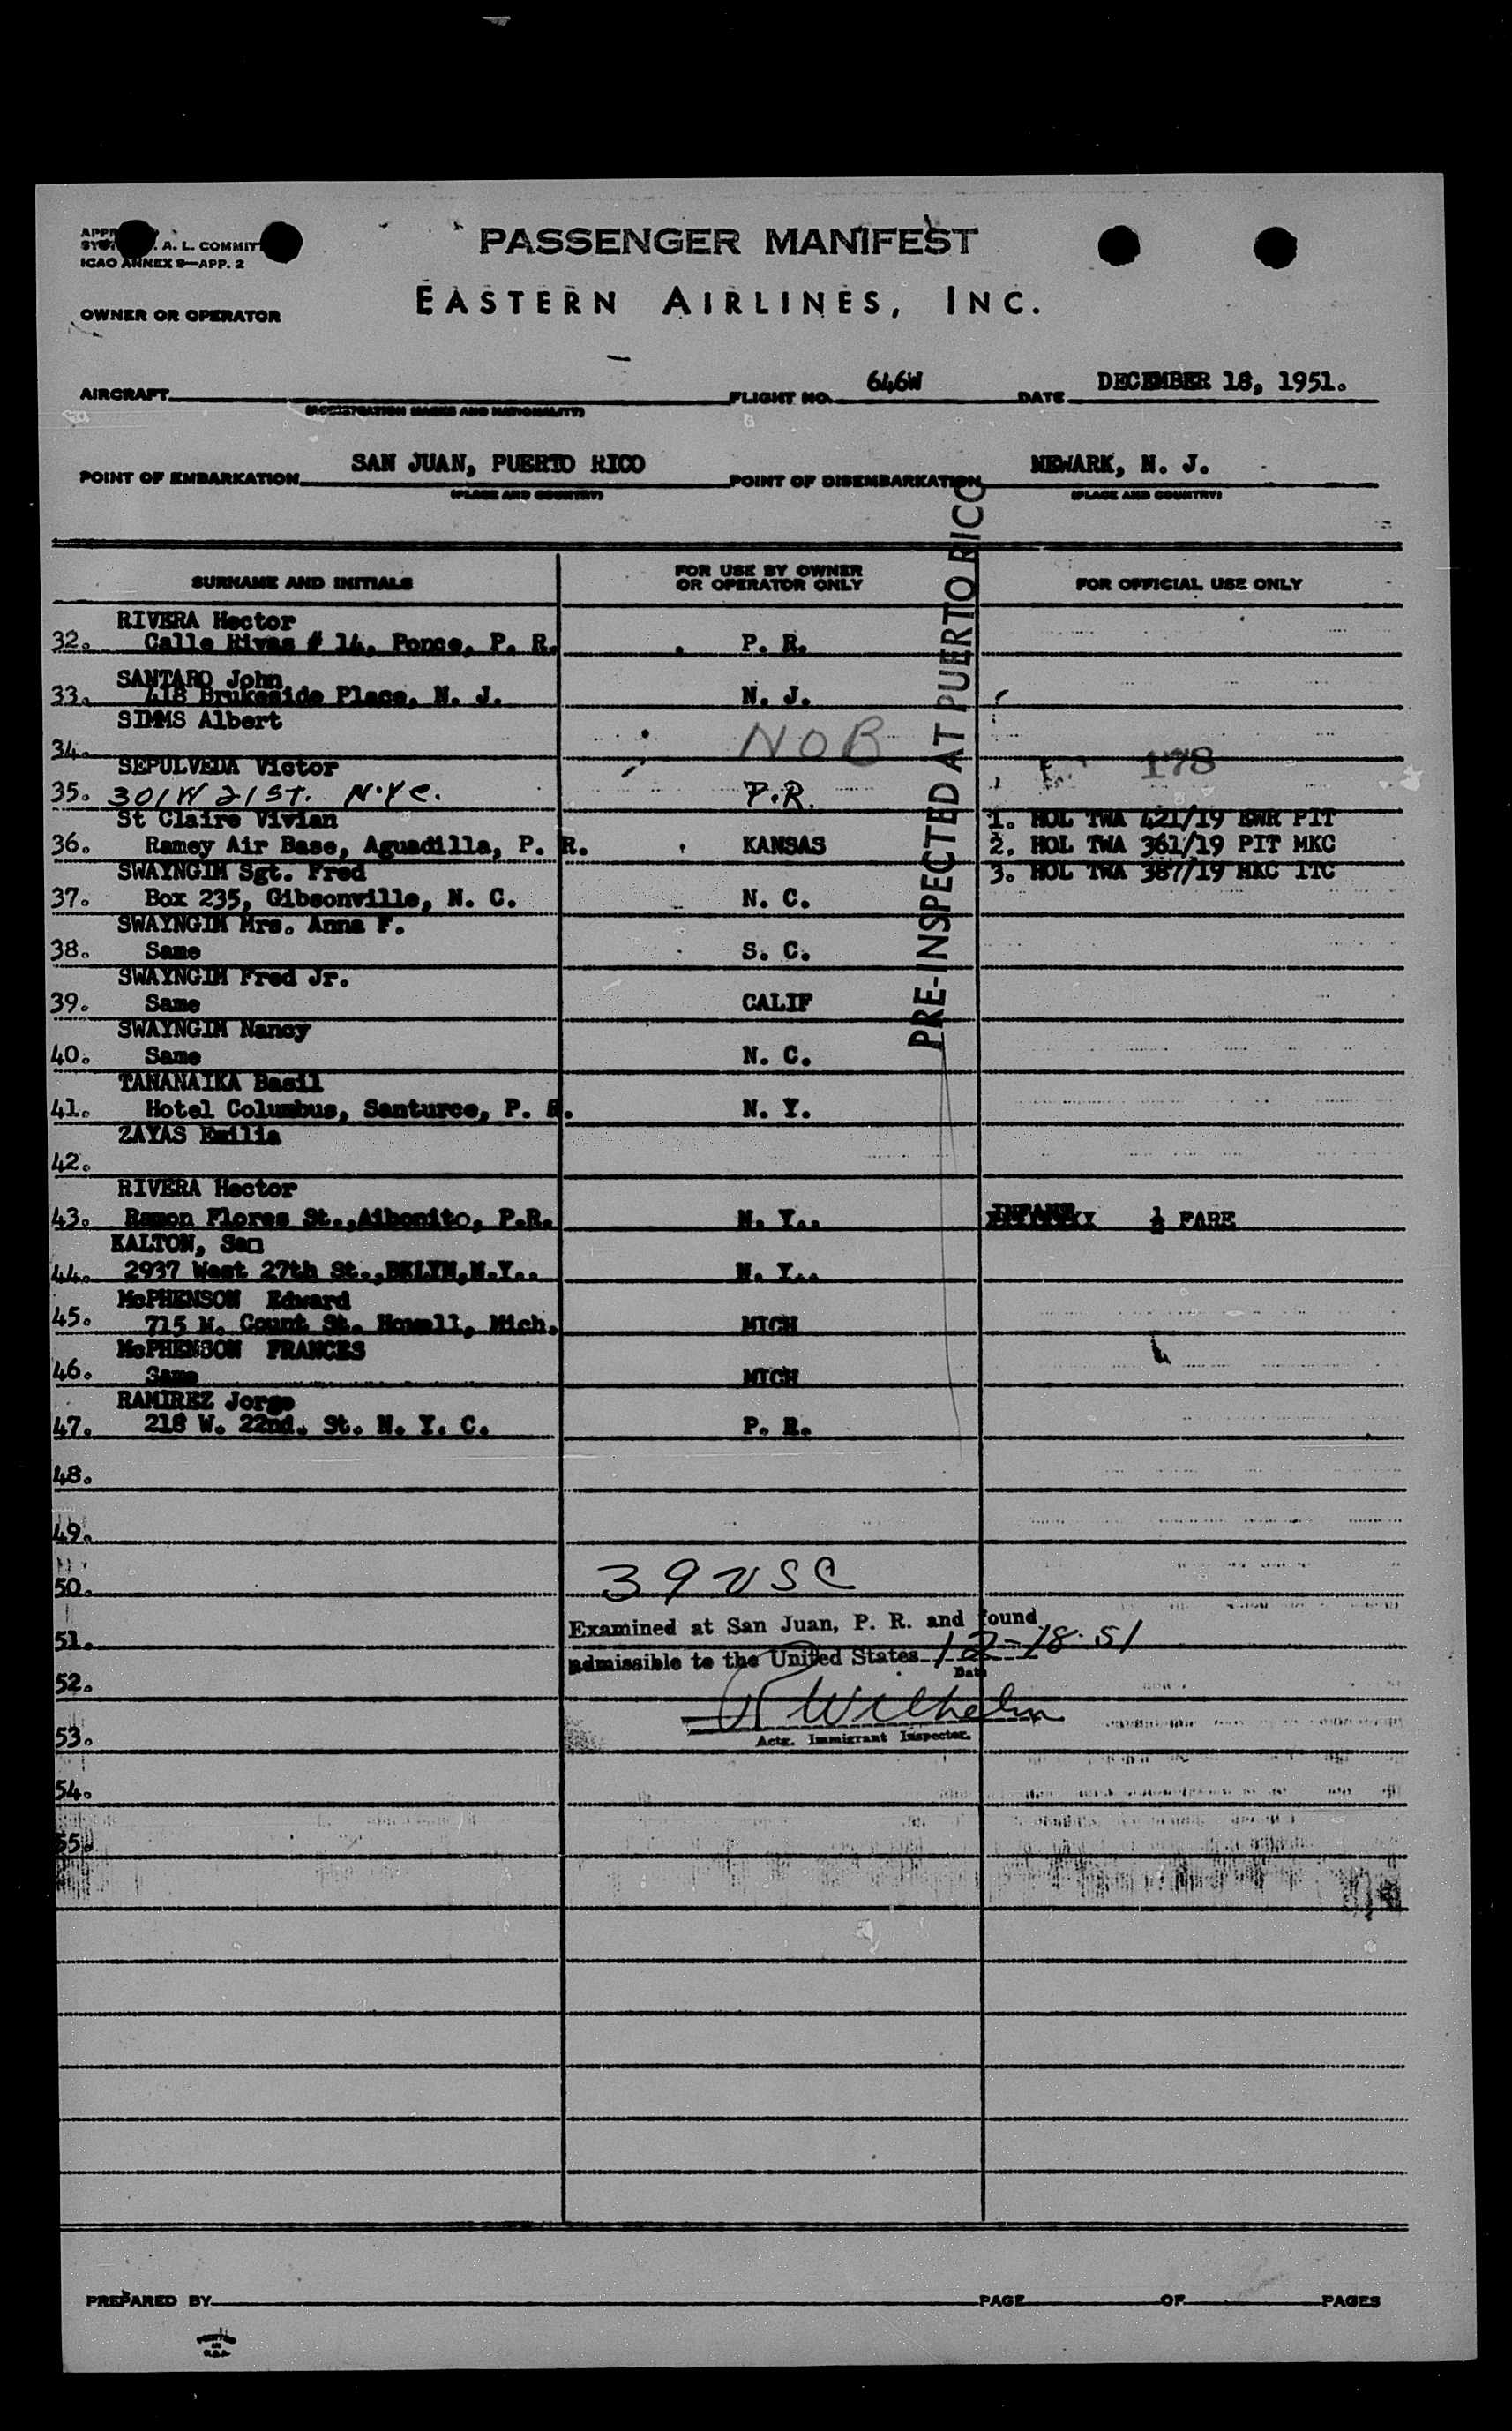 A. L. COMMIT
ICAO ANNEX 9—APP. 2
PASSENGER MANIFEST
EASTERN AIRLINES, INC.
OWNER OR OPERATOR
AIRCRAFT
(REGISTRATION MARKS AND NATIONALITY)
FLIGHT NO. 646W
DATE DECEMBER 18, 1951.
POINT OF EMBARKATION SAN JUAN, PUERTO RICO
(PLACE AND COUNTRY)
POINT OF DISEMBARKATION NEWARK, N. J.
(PLACE AND COUNTRY)
SURNAME AND INITIALS
FOR USE BY OWNER
OR OPERATOR ONLY
FOR OFFICIAL USE ONLY
PRE-INSPECTED AT PUERTO RICO
RIVERA Hector
32. Calle Rivas # 14, Ponce, P. R. P. R.
SANTARO John
33. 418 Brukeside Place, N. J. N. J.
SIMMS Albert
34. NOB
SEPULVEDA Victor 178
35. 301 W 21 ST. N.Y.C. P.R.
St Claire Vivian 1. HOL TWA 421/19 EWR PIT
36. Ramey Air Base, Aguadilla, P. R. KANSAS 2. HOL TWA 361/19 PIT MKC
SWAYNGIM Sgt. Fred 3. HOL TWA 387/19 MKC ITC
37. Box 235, Gibsonville, N. C. N. C.
SWAYNGIM Mrs. Anna F.
38. Same S. C.
SWAYNGIM Fred Jr.
39. Same CALIF
SWAYNGIM Nancy
40. Same N. C.
TANANAIKA Basil
41. Hotel Columbus, Santurce, P. R. N. Y.
ZAYAS Emilia
42.
RIVERA Hector
43. Ramon Flores St.,Aibonito, P.R. N. Y.. INFANT ½ FARE
KALTON, Sam
44. 2937 West 27th St.,BKLYN,N.Y.. N. Y..
McPHENSON Edward
45. 715 W. Count St. Howell, Mich. MICH
McPHENSON FRANCES
46. Same MICH
RAMIREZ Jorge
47. 218 W. 22nd. St. N. Y. C. P. R.
48.
49.
50. 39 USC
Examined at San Juan, P. R. and found
51.
admissible to the United States 12-18-51
Date
52.
Wilhelm
53. Actg. Immigrant Inspector.
54.
55.
PREPARED BY PAGE OF PAGES
PRINTED
IN
U.S.A.